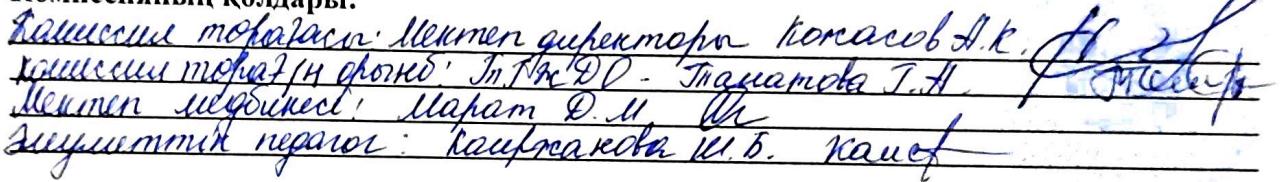 Комиссияның қолдары:
Комиссия төрағасы: Мектеп директоры Кожасов А.К.
Комиссия төрағ орынб: Таматова Г.А.
Мектеп медбикесі: Марат Д.М.
Әлуметтік педагог: Каиржанова Ш.Б.